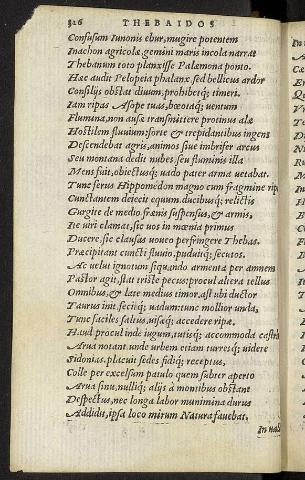 326 THEBAIDOS
Confusum Iunonis ebur, mugire potentem
Inachon agricolæ, gemini maris incola narrat
Thebanum toto planxisse Palæmona ponto.
Hæc audit Pelopeia phalanx, sed bellicus ardor
Consilijs obstat diuum, prohibetq́; timeri.
Iam ripas Asope tuas, bœotaq́; uentum
Flumina, non ausæ transmittere protinus alæ
Hostilem fluuium: forte & trepidantibus ingens
Descendebat agris, animos siue imbrifer arcus
Seu montana dedit nubes, seu fluminis illa
Mens fuit, obiectusq́; uado pater arma uetabat.
Tunc ferus Hippomedon magno cum fragmine rip
Cunctantem deiecit equum, ducibusq́; relictis
Gurgite de medio frænis suspensus, & armis,
Ite uiri clamat, sic uos in mœnia primus
Ducere, sic clausas uoueo perfringere Thebas.
Præcipitant cuncti fluuio, puduitq́; secutos.
Ac uelut ignotum siquando armenta per amnem
Pastor agit, stat triste pecus: procul altera tellus
Omnibus, & late medius timor, ast ubi ductor
Taurus init, fecitq́; uadum: tunc mollior unda,
Tunc faciles saltus, uisæq́; accedere ripæ.
Haud procul inde iugum, tutisq́; accommoda castris
Arua notant, unde urbem etiam turresq́; uidere
Sidonias. placuit sedes fidiq́; receptus,
Colle per excelsum patulo quem subter aperto
Arua sinu, nulliq́; alijs a montibus obstant
Despectus, nec longa labor munimina durus
Addidit, ipsa loco mirum Natura fauebat.